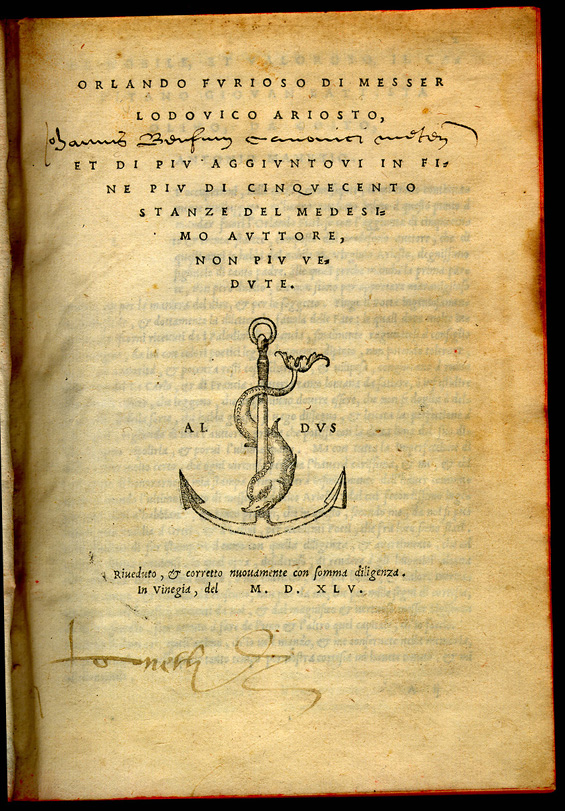 ORLANDO FVRIOSO DI MESSER
LODOVICO ARIOSTO,
Johannis canonici
ET DI PIV AGGIVNTOVI IN FI-
NE PIV DI CINQVECENTO
STANZE DEL MEDESI-
MO AVTTORE,
NON PIV VE-
DVTE.
AL DVS
Riueduto, & corretto nuouamente con ſomma diligenza.
In Vinegia, del M. D. XLV.